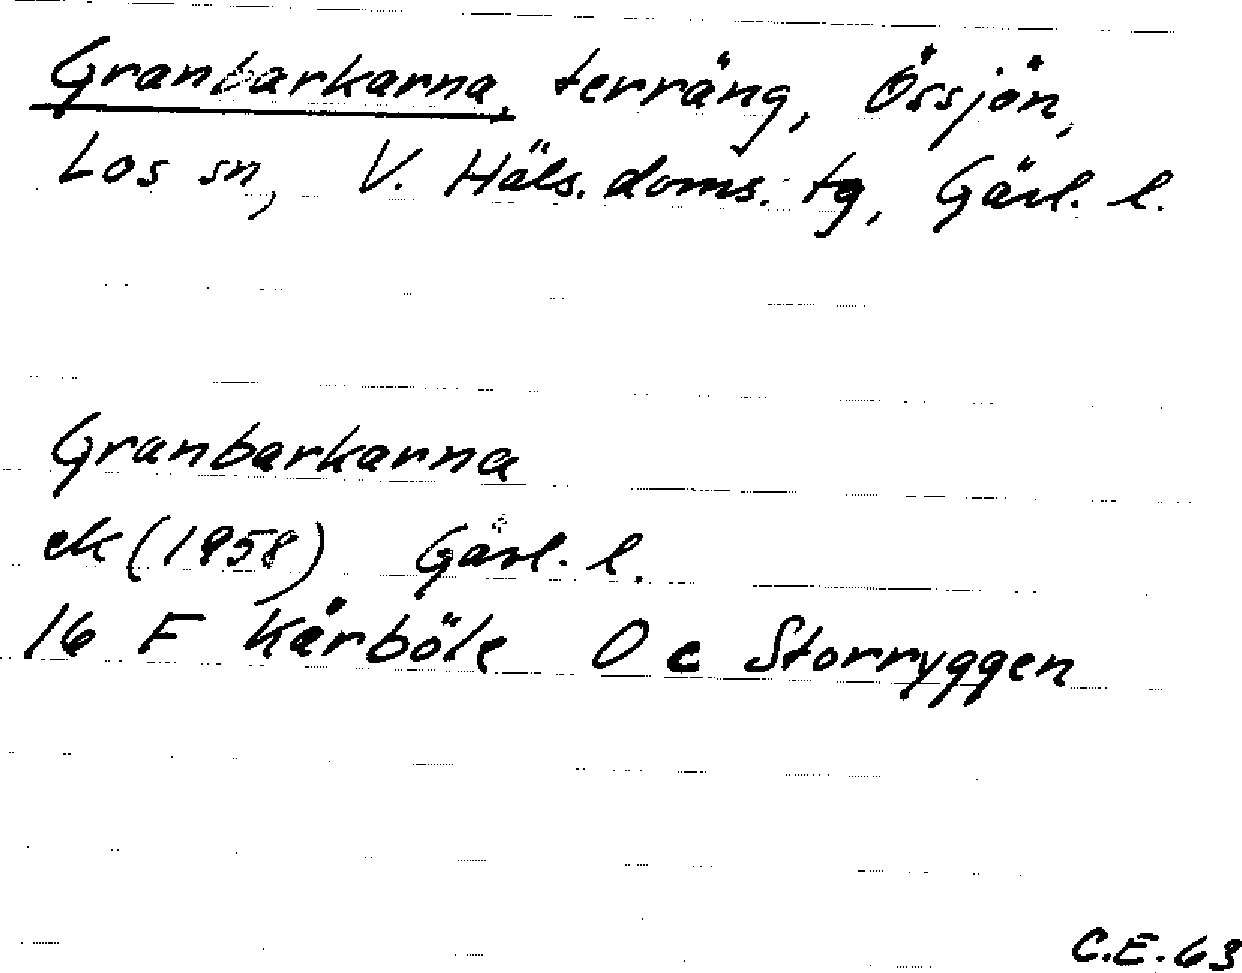 Granbarkarna, terräng, Össjön,
Los sn, V. Häls. doms. tg, Gävl. l.
Granbarkarna
ek (1958) Gävl. l.
16 F Kårböle 0 c Storryggen
C.E. 63